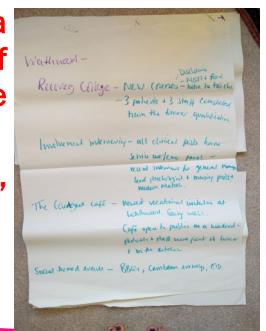 a
f
e
,
Wathwood -
Recovery College - New courses -
- 3 patients + 3 staff completed
train the trainer qualification
Involvement interviewing - all clinical posts have
service user/carer panel -
recent interviews for general manager
lead psychologist + nursing posts +
modern matron.
The café - newest vocational workshop at
Wathwood, going well.
Café open to public on a weekend -
patients + staff work front of house
+ in the kitchen.
Social themed events - BBQs, Caribbean evening, Eid